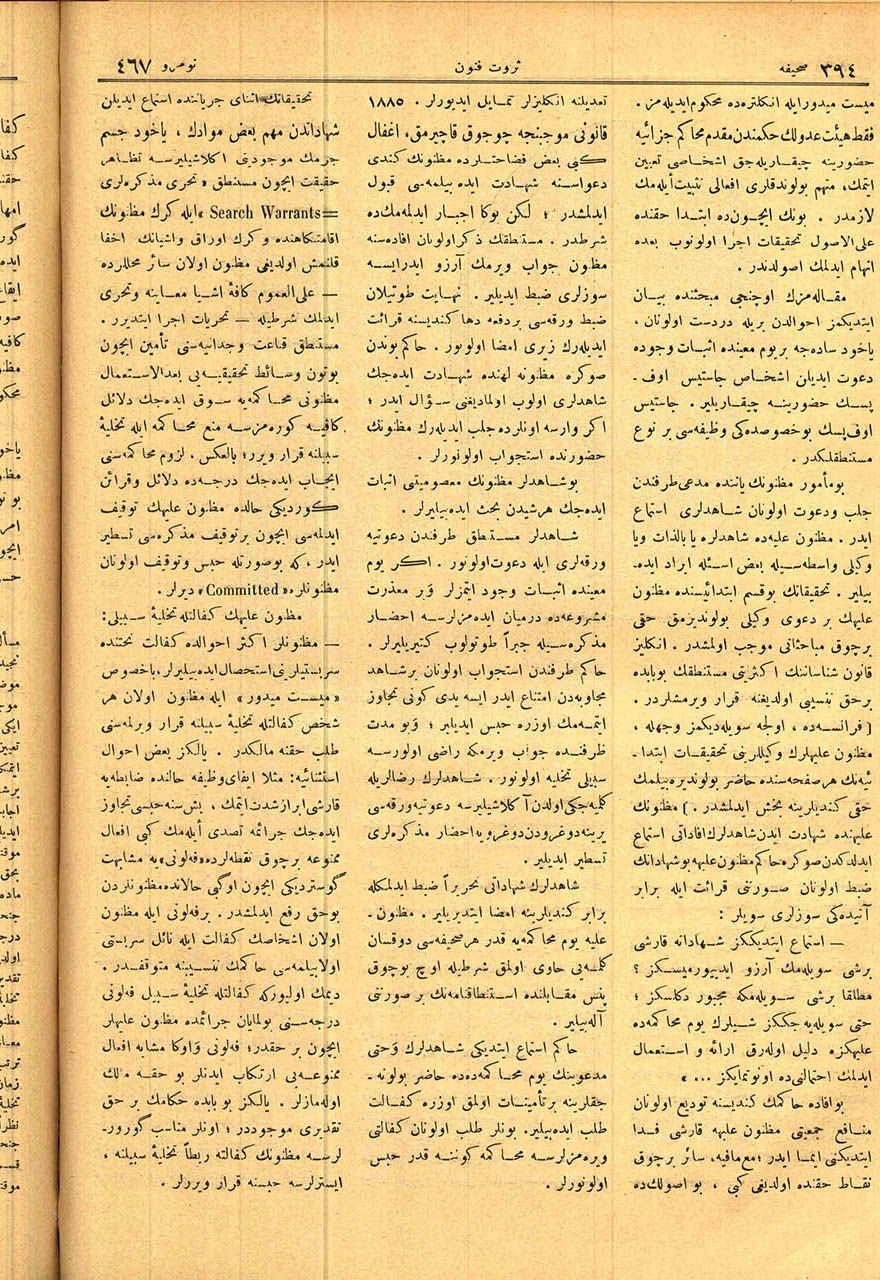 صحیفه ٣٩٤
ثروت فنون
نومرو ٤٦٧
میست میدورایله انکلترەده محکوم ایدیله‌مز .
فقط هیئت عدولك حکمندن مقدم محاکم جزائیه
حضورینه چیقاریله‌جق اشخاصی تعیین
ایتمك، متهم بولوندقلری افعالی تثبیت أیله‌مك
لازمدر . بونك ایچون‌ده ابتدا حقنده
علی‌الاصول تحقیقات اجرا اولونوب بعده
اتهام ایدلمك اصولدندر .
مقاله‌مزك اوچنجی مبحثنده بیان
ایتدیکمز احوالدن بریله دردست اولونان ،
یاخود ساده‌جه بریوم معینده اثبات وجوده
دعوت ایدیلن اشخاص جاستیس اوف-
پسك حضورینه چیقاریلیر . جاستیس
اوف‌پسك بوخصوصده‌کی وظیفه‌سی بر نوع
مستنطقلکدر .
بومأمور مظنونك یاننده مدعی طرفندن
جلب ودعوت اولونان شاهدلری استماع
ایدر . مظنون علیه‌ده شاهدلره یا بالذات ویا
وکیلی واسطه‌سیله بعض اسئله ایراد ایده-
بیلیر . تحقیقاتك بوقسم ابتدائیسنده مظنون
علیهك بر دعوی وکیلی بولوندیرمق حقی
برچوق مباحثاتی موجب اولمشدر . انکلیز
قانون شناساننك اکثریتی مستنطقك بوبابده
برحق نسبیی اولدیغنه قرار ویرمشلردر .
[ فرانسه‌ده ، اولجه سویله‌دیکمز وجهله ،
مظنون علیهلرك وکیللرینی تحقیقات ابتدا-
ئیه‌نك هر صفحه‌سنده حاضر بولوندیره‌بیلمك
حقی کندیلرینه بخش ایدلمشدر . ] مظنونك
علیهنده شهادت ایدن شاهدلرك افاداتی استماع
ایدلدکدن صوکره حاکم مظنون علیهه بوشهاداتك
ضبط اولونان صورتنی قرائت ایله برابر
آتیده‌کی سوزلری سویلر :
— استماع ایتدیککز شهاداته قارشی
برشی سویله‌مك آرزو ایدییورمیسکز ؟
مطلقا برشی سویله‌مکه مجبور دکلسکز ؛
حتی سویله‌یه‌جککز شیلرك یوم محاکمه‌ده
علیهکزه دلیل اوله‌رق ارائه و استعمال
ایدلمك احتمالنی‌ده اونوتمایکز ... »
بوافاده حاکمك کندیسنه تودیع اولونان
منافع جمعیتی مظنون علیهه قارشی فدا
ایتدیکنی ایما ایدر ؛ مع‌مافیه، سائر برچوق
نقاط حقنده اولدیغی کبی ، بو اصولك‌ده
تعدیلنه انکلیزلر تمایل ایدیورلر . ١٨٨٥
قانونی موجبنجه چوجوق قاچیرمق، اغفال
کبی بعض فضاحتلرده مظنونك کندی
دعواسنه شهادت ایده بیلمه‌سی قبول
ایدلمشدر ؛ لکن بوکا اجبار ایدلمه‌مك‌ده
شرطدر . مستنطقك ذکر اولونان افاده‌سنه
مظنون جواب ویرمك آرزو ایدرایسه
سوزلری ضبط ایدیلیر . نهایت طوتیلان
ضبط ورقه‌سی بردفعه دها کندیسنه قرائت
ایدیله‌رك زیری امضا اولونور . حاکم بوندن
صوکره مظنونه لهنده شهادت ایده‌جك
شاهدلری اولوب اولمادیغنی سؤال ایدر ؛
اکر وارسه اونلرده جلب ایدیله‌رك مظنونك
حضورنده استجواب اولونورلر .
بوشاهدلر مظنونك معصومیتی اثبات
ایده‌جك هرشیدن بحث ایده‌بیلیرلر .
شاهدلر مستنطق طرفندن دعوتیه
ورقه‌لری ایله دعوت اولونور . اکر یوم
معینده اثبات وجود ایتمزلر وَبر معذرت
مشروعه‌ده درمیان ایده‌مزلرسه احضار
مذکره‌سیله جبراً طوتولوب کتیریلیرلر .
حاکم طرفندن استجواب اولونان برشاهد
مجاوبه‌دن امتناع ایدر ایسه یدی کونی تجاوز
ایتمه‌مك اوزره حبس ایدیلیر ؛ وَبو مدت
ظرفنده جواب ویرمکه راضی اولورسه
سبیلی تخلیه اولونور . شاهدلرك رضالریله
کلمیه‌جکی اولدن آکلاشیلیرسه دعوتیه ورقه‌سی
یرینه دوغریدن دوغرویه احضار مذکره‌لری
تسطیر ایدیلیر .
شاهدلرك شهاداتی تحریراً ضبط ایدلمکله
برابر کندیلرینه امضا ایتدیریلیر . مظنون-
علیه یوم محاکمه‌یه قدر هر صحیفه‌سی دوقسان
کلمه‌یی حاوی اولمق شرطیله اوچ بوچوق
پنس مقابلنده استنطاقنامه‌نك بر صورتنی
آله‌بیلیر .
حاکم استماع ایتدیکی شاهدلرك وَحتی
مدعوینك یوم محاکمه‌ده‌ده حاضر بولونه-
جقلرینه برتأمینات اولمق اوزره کفالت
طلب ایده‌بیلیر. بونلر طلب اولونان کفالتی
ویره‌مزلرسه محاکمه کوننه قدر حبس
اولونورلر .
تحقیقاتك اثنای جریاننده استماع ایدیلن
شهاداتدن مهم بعض موادك ، یاخود جسم
جرمك موجودیتی اکلاشیلیرسه تظاهر
حقیقت ایچون مستنطق « تحری مذکره‌لری
=Search Warrants » ایله کرك مظنونك
اقامتکاهنده وکرك اوراق واشیانك اخفا
قلنمش اولدیغی مظنون اولان سائر محللرده
— علی‌العموم کافهٔ اشیا معاینه وتحری
ایدلمك شرطیله — تحریات اجرا ایتدیرر .
مستنطق قناعت وجدانیه‌سنی تأمین ایچون
بوتون وسائط تحقیقیه‌یی بعدالاستعمال
مظنونی محاکمه‌یه سوق ایده‌جك دلائل
کافیه کوره‌مزسه منع محاکمه ایله تخلیهٔ
سبیلنه قرار ویرر؛ بالعکس ، لزوم محاکمه‌سنی
ایجاب ایده‌جك درجه‌ده دلائل وقرائن
کوردیکی حالده مظنون علیهك توقیف
ایدلمه‌سی ایچون برتوقیف مذکره‌سی تسطیر
ایدر ، که بوصورتله حبس وتوقیف اولونان
مظنونلره « Committed » دیرلر .
مظنون علیهك کفالتله تخلیهٔ سبیلی:
— مظنونلر اکثر احوالده کفالت تحتنده
سربستیلرینی استحصال ایده‌بیلیرلر ، باخصوص
« میست میدور » ایله مظنون اولان هر
شخص کفالتله تخلیهٔ سبیلنه قرار ویرلمه‌سنی
طلب حقنه مالکدر . یالکز بعض احوال
استثنائیه: مثلا ایفای وظیفه حالنده ضابطه‌یه
قارشی ابراز شدت ایتمك ، بش سنه حبسی تجاوز
ایده‌جك جرائمه تصدی أیله‌مك کبی افعال
ممنوعه برچوق نقطه‌لرده «فه‌لونی» یه مشابهت
گوستردیکی ایچون اوگبی حالاتده مظنونلردن
بوحق رفع ایدلمشدر . برفه‌لونی ایله مظنون
اولان اشخاصك کفالت ایله نائل سربستی
اولابیلمه‌سی حاکمك تنسیبنه متوقفدر .
دیمك اولیورکه کفالتله تخلیهٔ سبیل فه‌لونی
درجه‌سنی بولمایان جرائمده مظنون علیهلر
ایچون بر حقدر ؛ فه‌لونی وَاوکا مشابه افعال
ممنوعه‌یی ارتکاب ایدنلر بو حقه مالك
اوله‌مازلر . یالکز بو بابده حکامك بر حق
تقدیری موجوددر ؛ اونلر مناسب گورور-
لرسه مظنونك کفالته ربطاً تخلیهٔ سبیلنه ،
ایسترلرسه حبسنه قرار ویررلر .